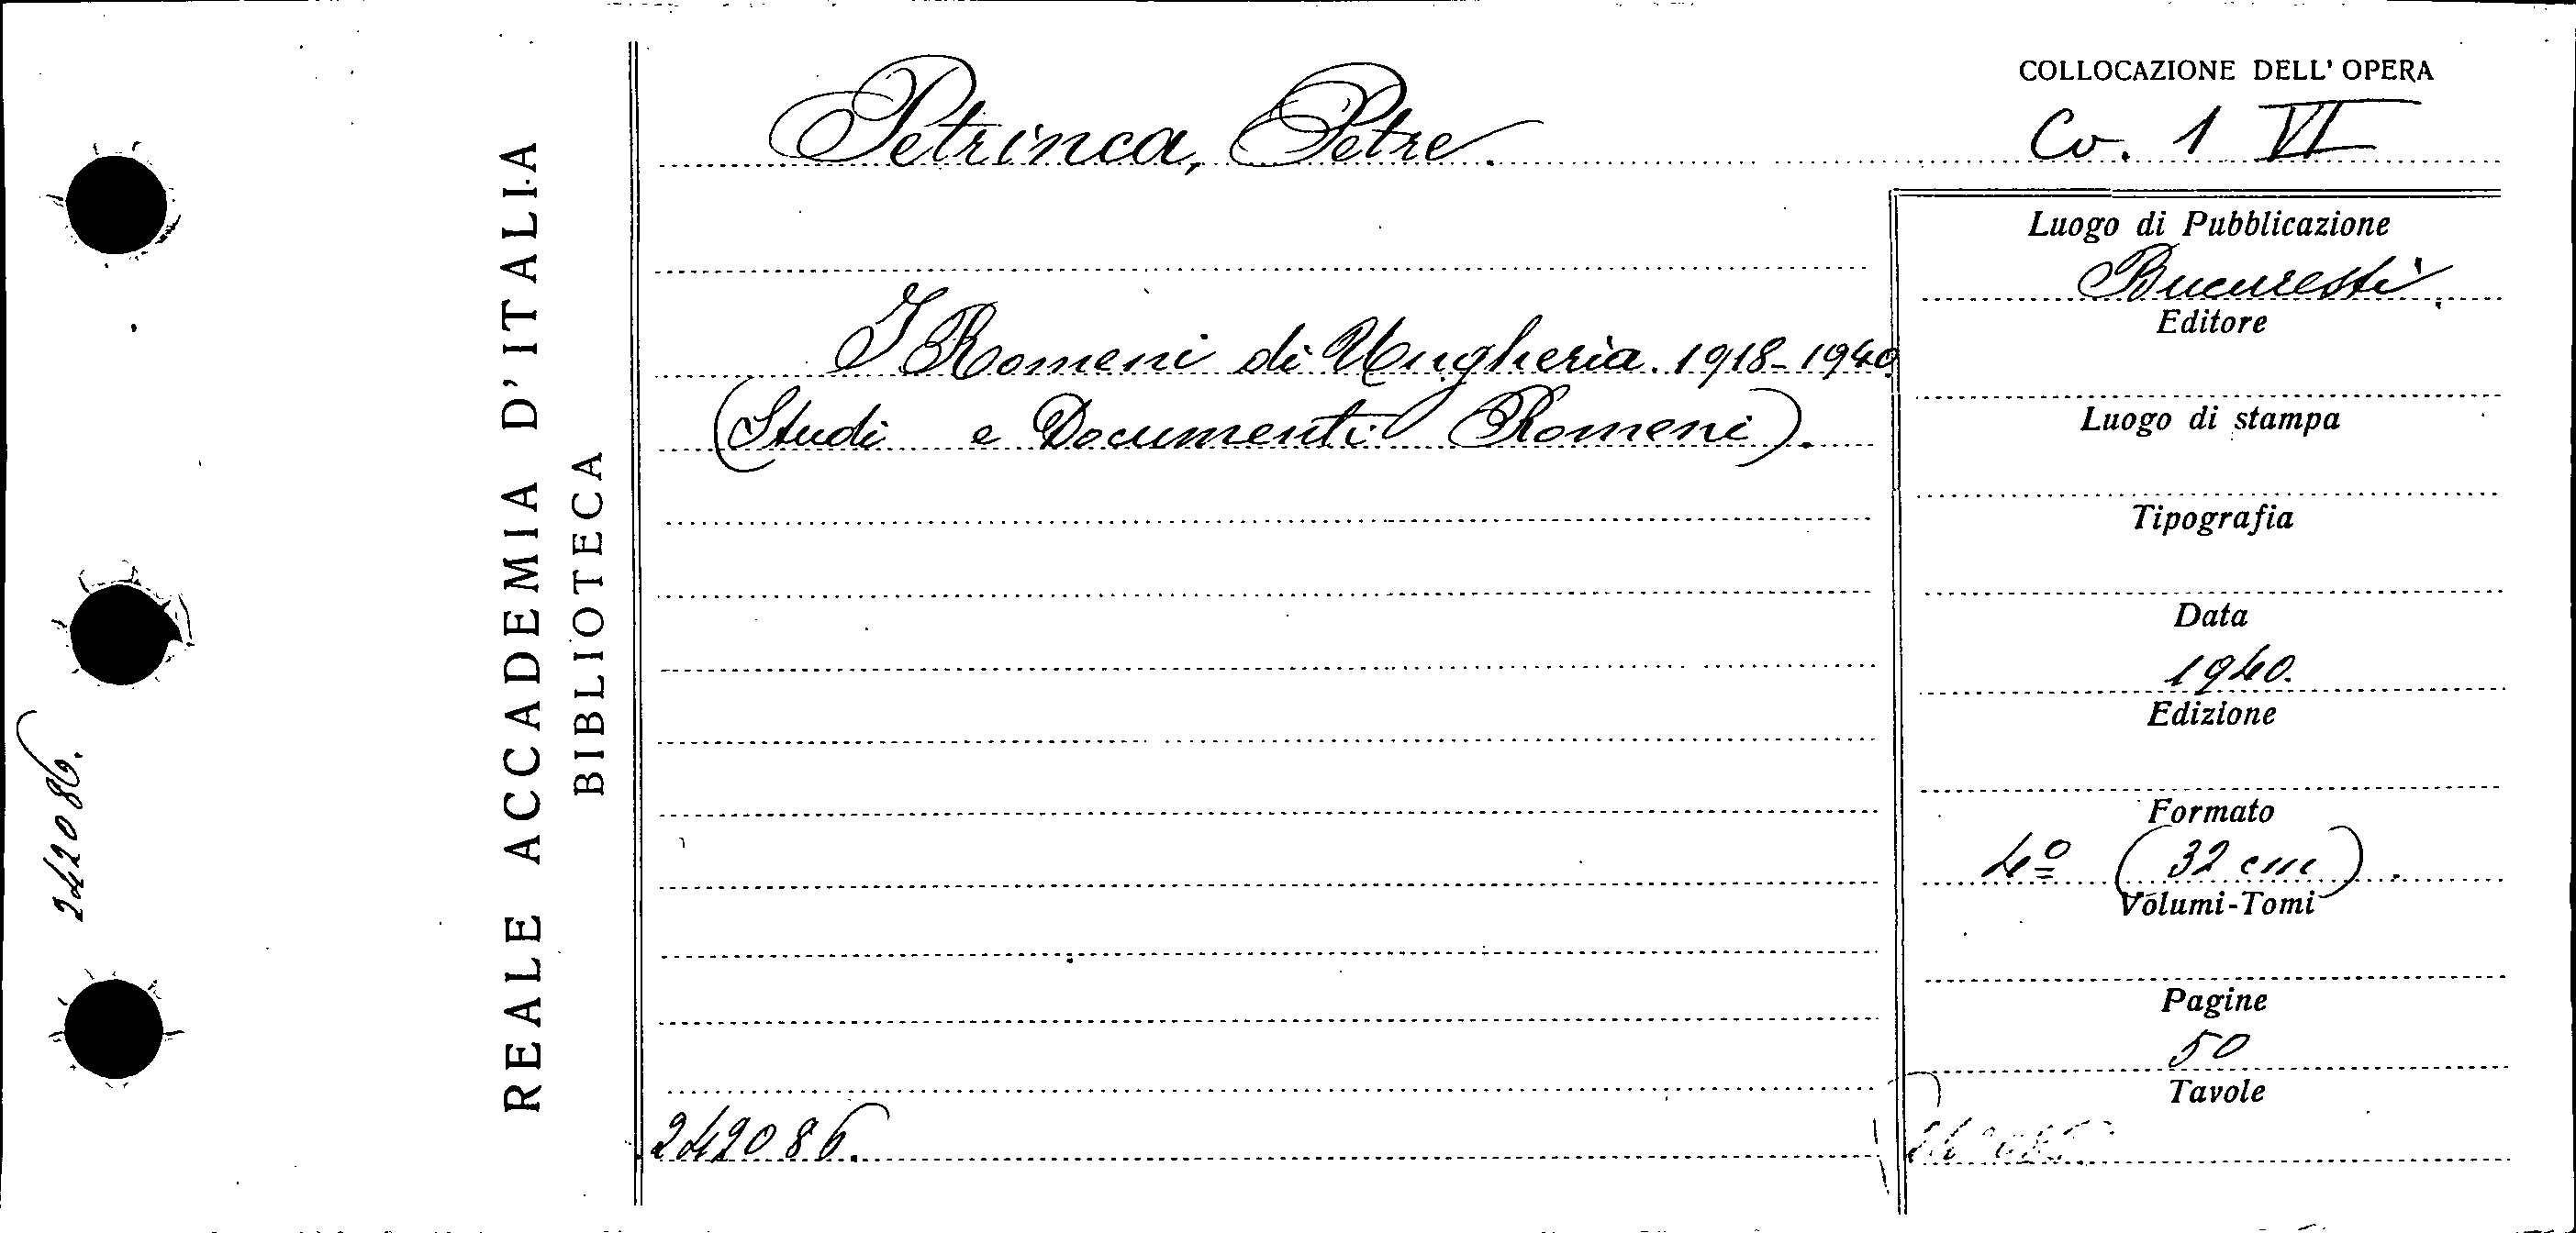 REALE ACCADEMIA D'ITALIA
BIBLIOTECA
242086.
Petrinca, Petre.
I Romeni di Ungheria. 1918-1940
(Studi e Documenti Romeni).
242086.
COLLOCAZIONE DELL' OPERA
Co. 1 VI
Luogo di Pubblicazione
Bucuresti.
Editore
Luogo di stampa
Tipografia
Data
1940.
Edizione
Formato
4º (32 cm).
Volumi-Tomi
Pagine
50
Tavole